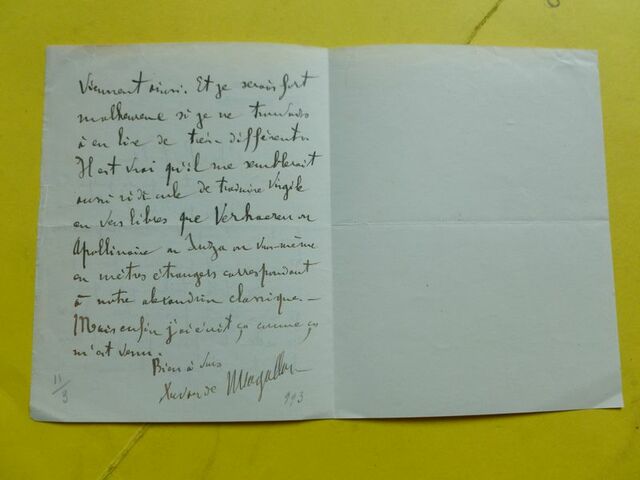 Viennent ainsi. Et je serais fort
malheureux si je ne trouvais
à en lire de très différents.
Il est vrai qu'il me semblerait
aussi ridicule de traduire Virgile
en vers libres que Verhaeren ou
Apollinaire ou ou vous-même
en mètres étrangers correspondant
à notre alexandrin classique.—
Mais enfin j'ai écrit ça comme ça
m'est venu.
Bien à vous
Xavier de Magallon
11/3
993